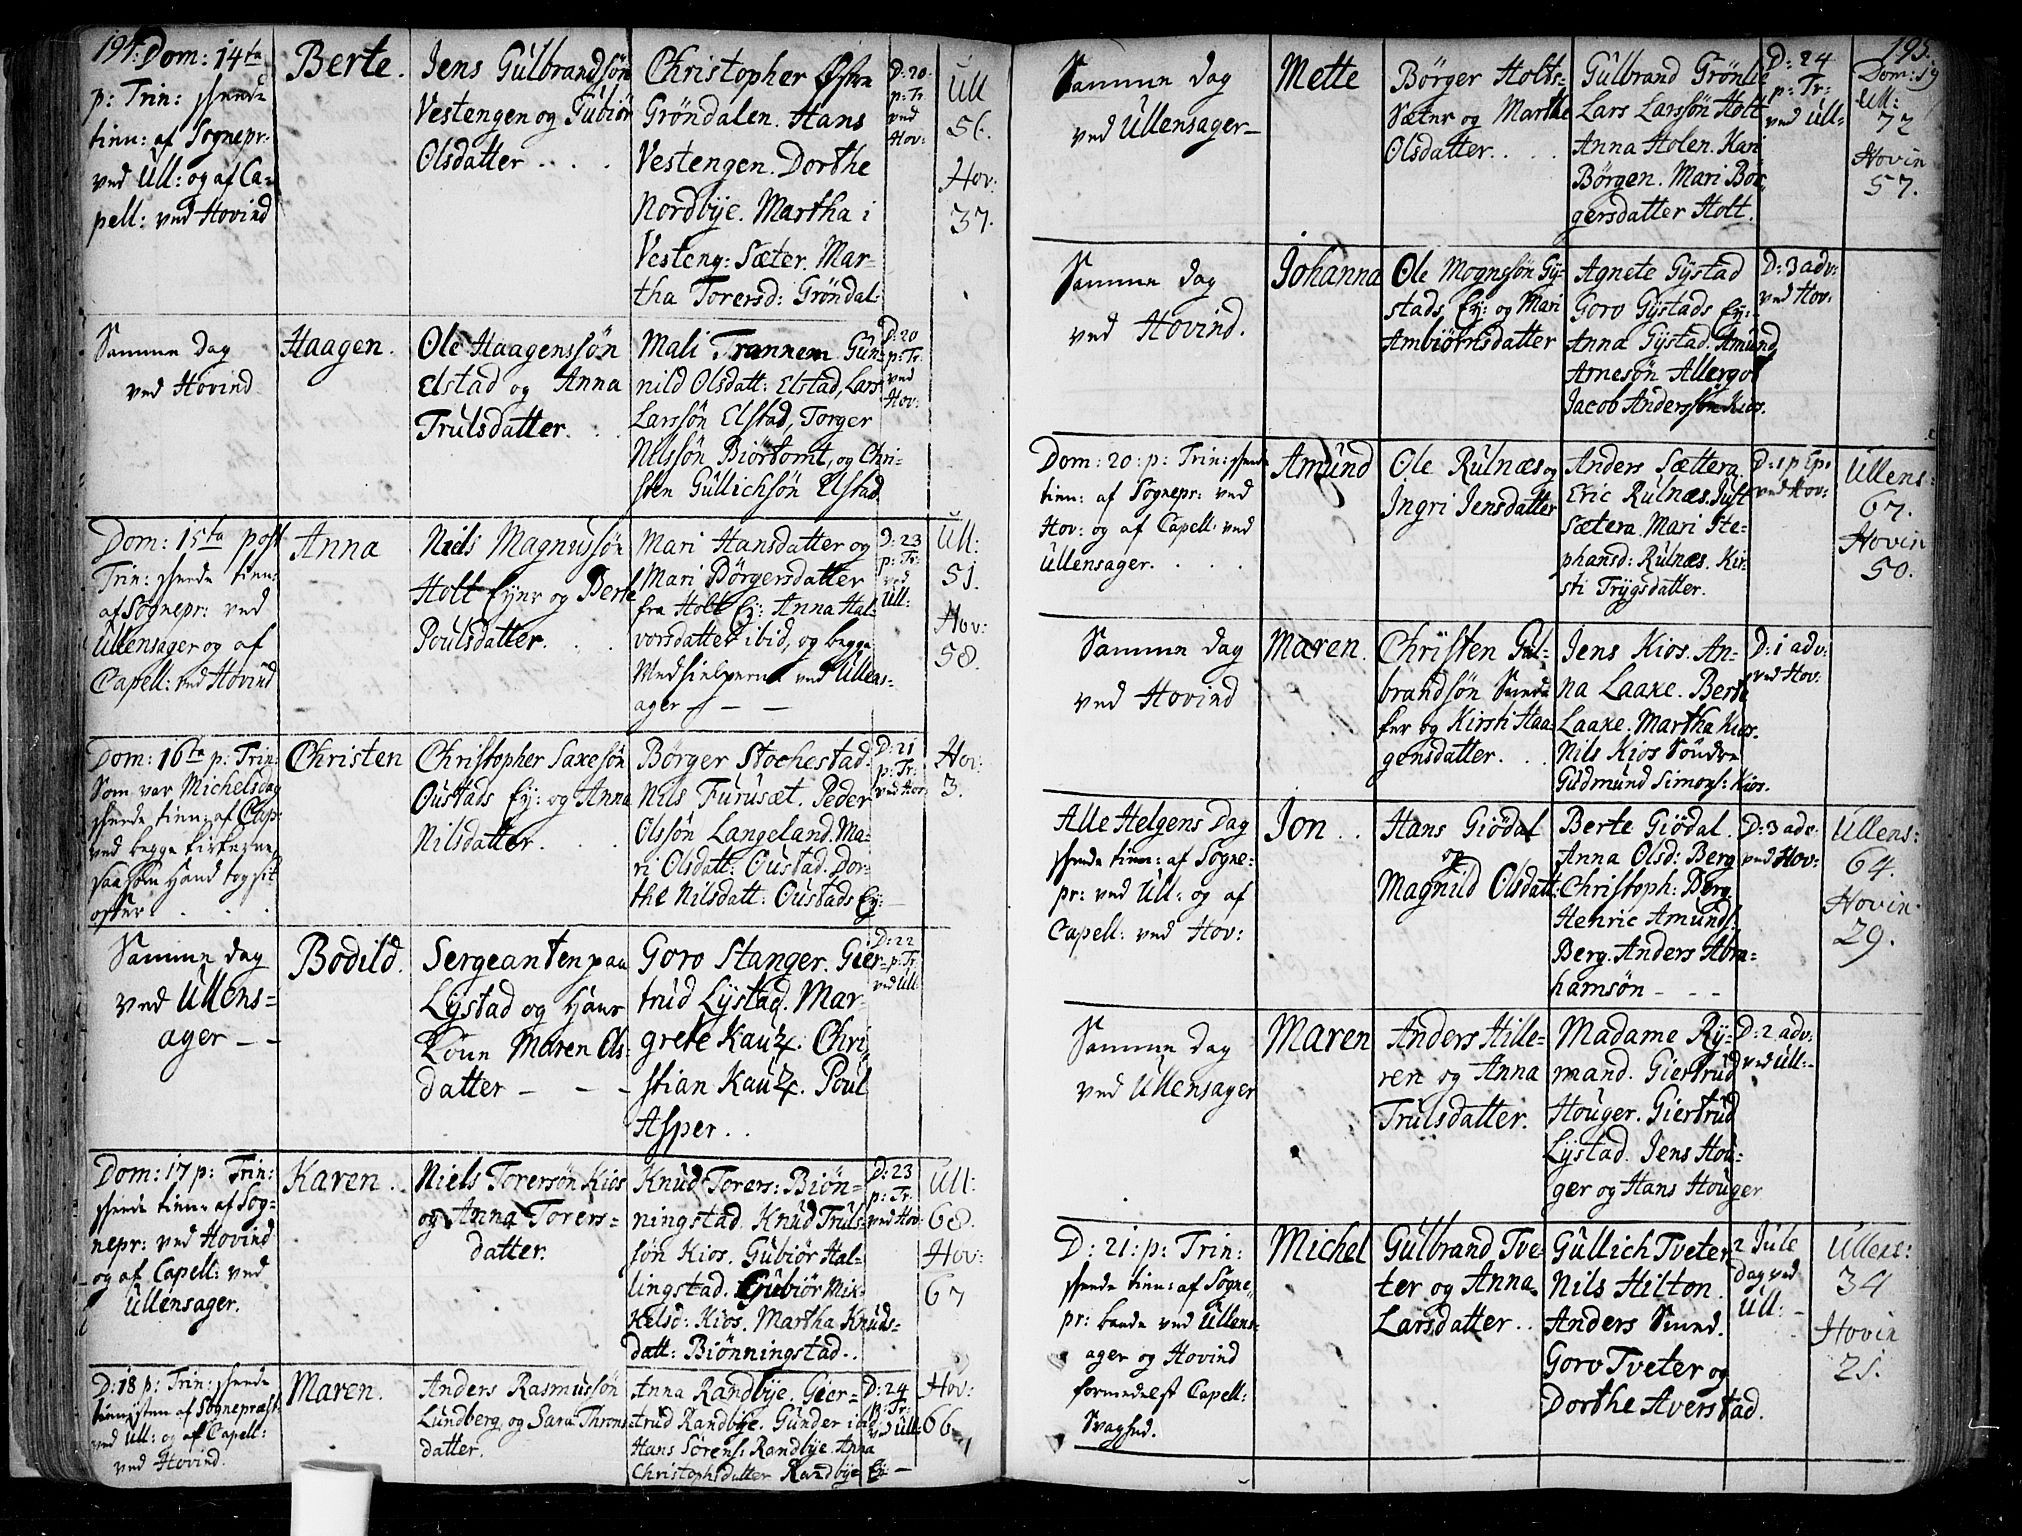 194.
Dom: 14ta
p: Trin: skeede
tien: af Sognepr:
ved Ull: og af Ca-
pell: ved Hovind
Berte.
Jens Gulbrandsøn
Vestengen og Gubiør
Olsdatter . . . .
Christopher
Grøndalen. Hans
Vestengen. Dorthe
Nordbye. Martha i
Vesteng: Sæter. Mar-
tha Torersd: Grøndal:
D: 20
p: Tr:
ved
Hov:
Ull
56.
Hov:
37.
Samme dag
ved Hovind
Haagen.
Ole Haagenssøn
Elstad og Anna
Trulsdatter. . .
Mali Trannem Gun-
nild Olsdatt: Elstad, Lars
Larssøn Elstad, Torger
Nilssøn Biørtomt, og Chri-
sten Gullichsøn Elstad
D: 20
p: Tr:
ved
Hov:
Dom: 15ta post
Trin: skeede tien:
af Sognepr: ved
Ullensager og af
Capell: ved Hovind
Anna
Niels Magnussøn
Holt Eyer og Berte
Poulsdatter. . .
Mari Hansdatter og
Mari Børgersdatter
fra Holt Ey: Anna Hal-
vorsdatter ibid, og begge
Medhielperne ved Ullens-
ager — — —
D: 23
p: Tr:
ved
Ull:
Ull:
51.
Hov:
58.
Dom: 16ta p: Trin:
Som var Michelsdag
skeede tien: af Cap:
ved begge kirkerne,
saasom Hand tog sit
offer . . .
Christen
Christopher Saxesøn
Oustads Ey: og Anna
Nilsdatter. . .
Børger Stochestad.
Nils Furusæt. Peder
Olssøn Langeland. Ma-
ri Olsdatt: Oustad. Dor-
the Nilsdatt: Oustads Ey:
D: 21
p: Tr:
ved Hov:
Hov:
3.
Samme dag
ved Ullens-
ager — —
Bodild.
Sergeanten paa
Lystad og Hans
Kone Maren Ols-
datter — — —
Goro Stanger. Gier-
trud Lystad. Mar-
grete Kautz. Chri-
stian Kautz. Poul
Asper . .
D: 22
p: Tr:
ved Ull
Dom: 17 p: Trin:
skeede tien: af Sog-
nepr: ved Hovind
og af Capell: ved
Ullensager.
Karen . .
Niels Torersøn Kios
og Anna Torers-
datter.
Knud Torers: Biøn-
ningstad. Knud Truls-
søn Kios. Gubiør Hal-
lingstad. Gubiør Mik-
kelsd: Kios. Martha Knuds-
datt: Biønningstad. .
D: 23
p: Tr:
ved Hov:
Ull:
68.
Hov:
67
D: 18 p: Trin: skeede
tienesten af Sognepræst:
ved Ull: og af Capell:
ved Hovind.
Maren.
Anders Rasmussøn
Lundberg, og Sara Throns-
datter.
Anna Randbye. Gier-
trud Randbye. Gunder ibid
Hans Sørens: Randbye. Anna
Christophsdatter Randbye Ey —
D: 24
p: Tr:
ved Ull:
Hov:
66.
195.
Samme dag
ved Ullensager—
Mette
Børger Holts-
Sæter og Marthe
Olsdatter. . . .
Gulbrand Grønlie
Lars Larssøn Holt
Anna Holen. Kari
Børgen. Mari Bør-
gersdatter Holt.
D: 24
p: Tr:
ved Ull:
Dom: 19
Ull:
72
Hovin
57.
Samme dag
ved Hovind.
Johanna
Ole Mognssøn Gy-
stads Ey: og Mari
Ambiørnsdatter
Agnete Gystad
Goro Gystads Ey:
Anna Gystad. Amund
Arnesøn Allergot
Jacob Anderssøn Kios.
D: 3 adv:
ved Hov:
Dom: 20: p: Trin: skeede
tien: af Sognepr: ved
Hov: og af Capell: ved
Ullensager. . . .
Amund
Ole Rulnæs og
Ingri Jensdatter
Anders Sættera
Eric Rulnæs. Just
Sætera. Mari Ste-
phansd: Rulnæs. Kir-
sti Trygsdatter.
D: 1 p Ep:
ved Hov:
Ullens:
67.
Hovin
50.
Samme dag
ved Hovind
Maren.
Christen Gul-
brandsøn
og Kirsti Haa-
gensdatter. . .
Jens Kios. An-
na Laaxe. Berte
Laaxe. Martha Kios.
Nils Kios Søndre
Gudmund Simons: Kios.
D: 1 adv:
ved Hov:
Alle Helgens Dag
skeede tien: af Sogne-
pr: ved Ull: og af
Capell: ved Hov:
Jon . .
Hans Giødal
og
Magnild Olsdatt:
Berte Giødal.
Anna Olsd: Berg
Christoph: Berg.
Henric Amunds:
Berg. Anders Abra-
hamsøn — — —
D: 3 adv:
ved Hov:
Ullens:
64.
Hovin
29.
Samme dag
ved Ullensager
Maren
Anders Hille-
ren og Anna
Trulsdatter.
Madame Ry-
mand. Giertrud
Houger. Giertrud
Lystad. Jens Hou-
ger og Hans Houger
D: 2 adv:
ved Ull:
D: 21: p: Trin:
skeede tien: af Sogne-
pr: baade ved Ullens-
ager og Hovind
formedelst Capell:
Svaghed.
Michel
Gulbrand Tve-
ter og Anna
Larsdatter . .
Gullich Tveter
Nils Hilton.
Anders Smed.
Goro Tveter og
Dorthe Averstad.
2 Jule
Dag ved
Ull: —
Ullens:
34
Hovin
21.